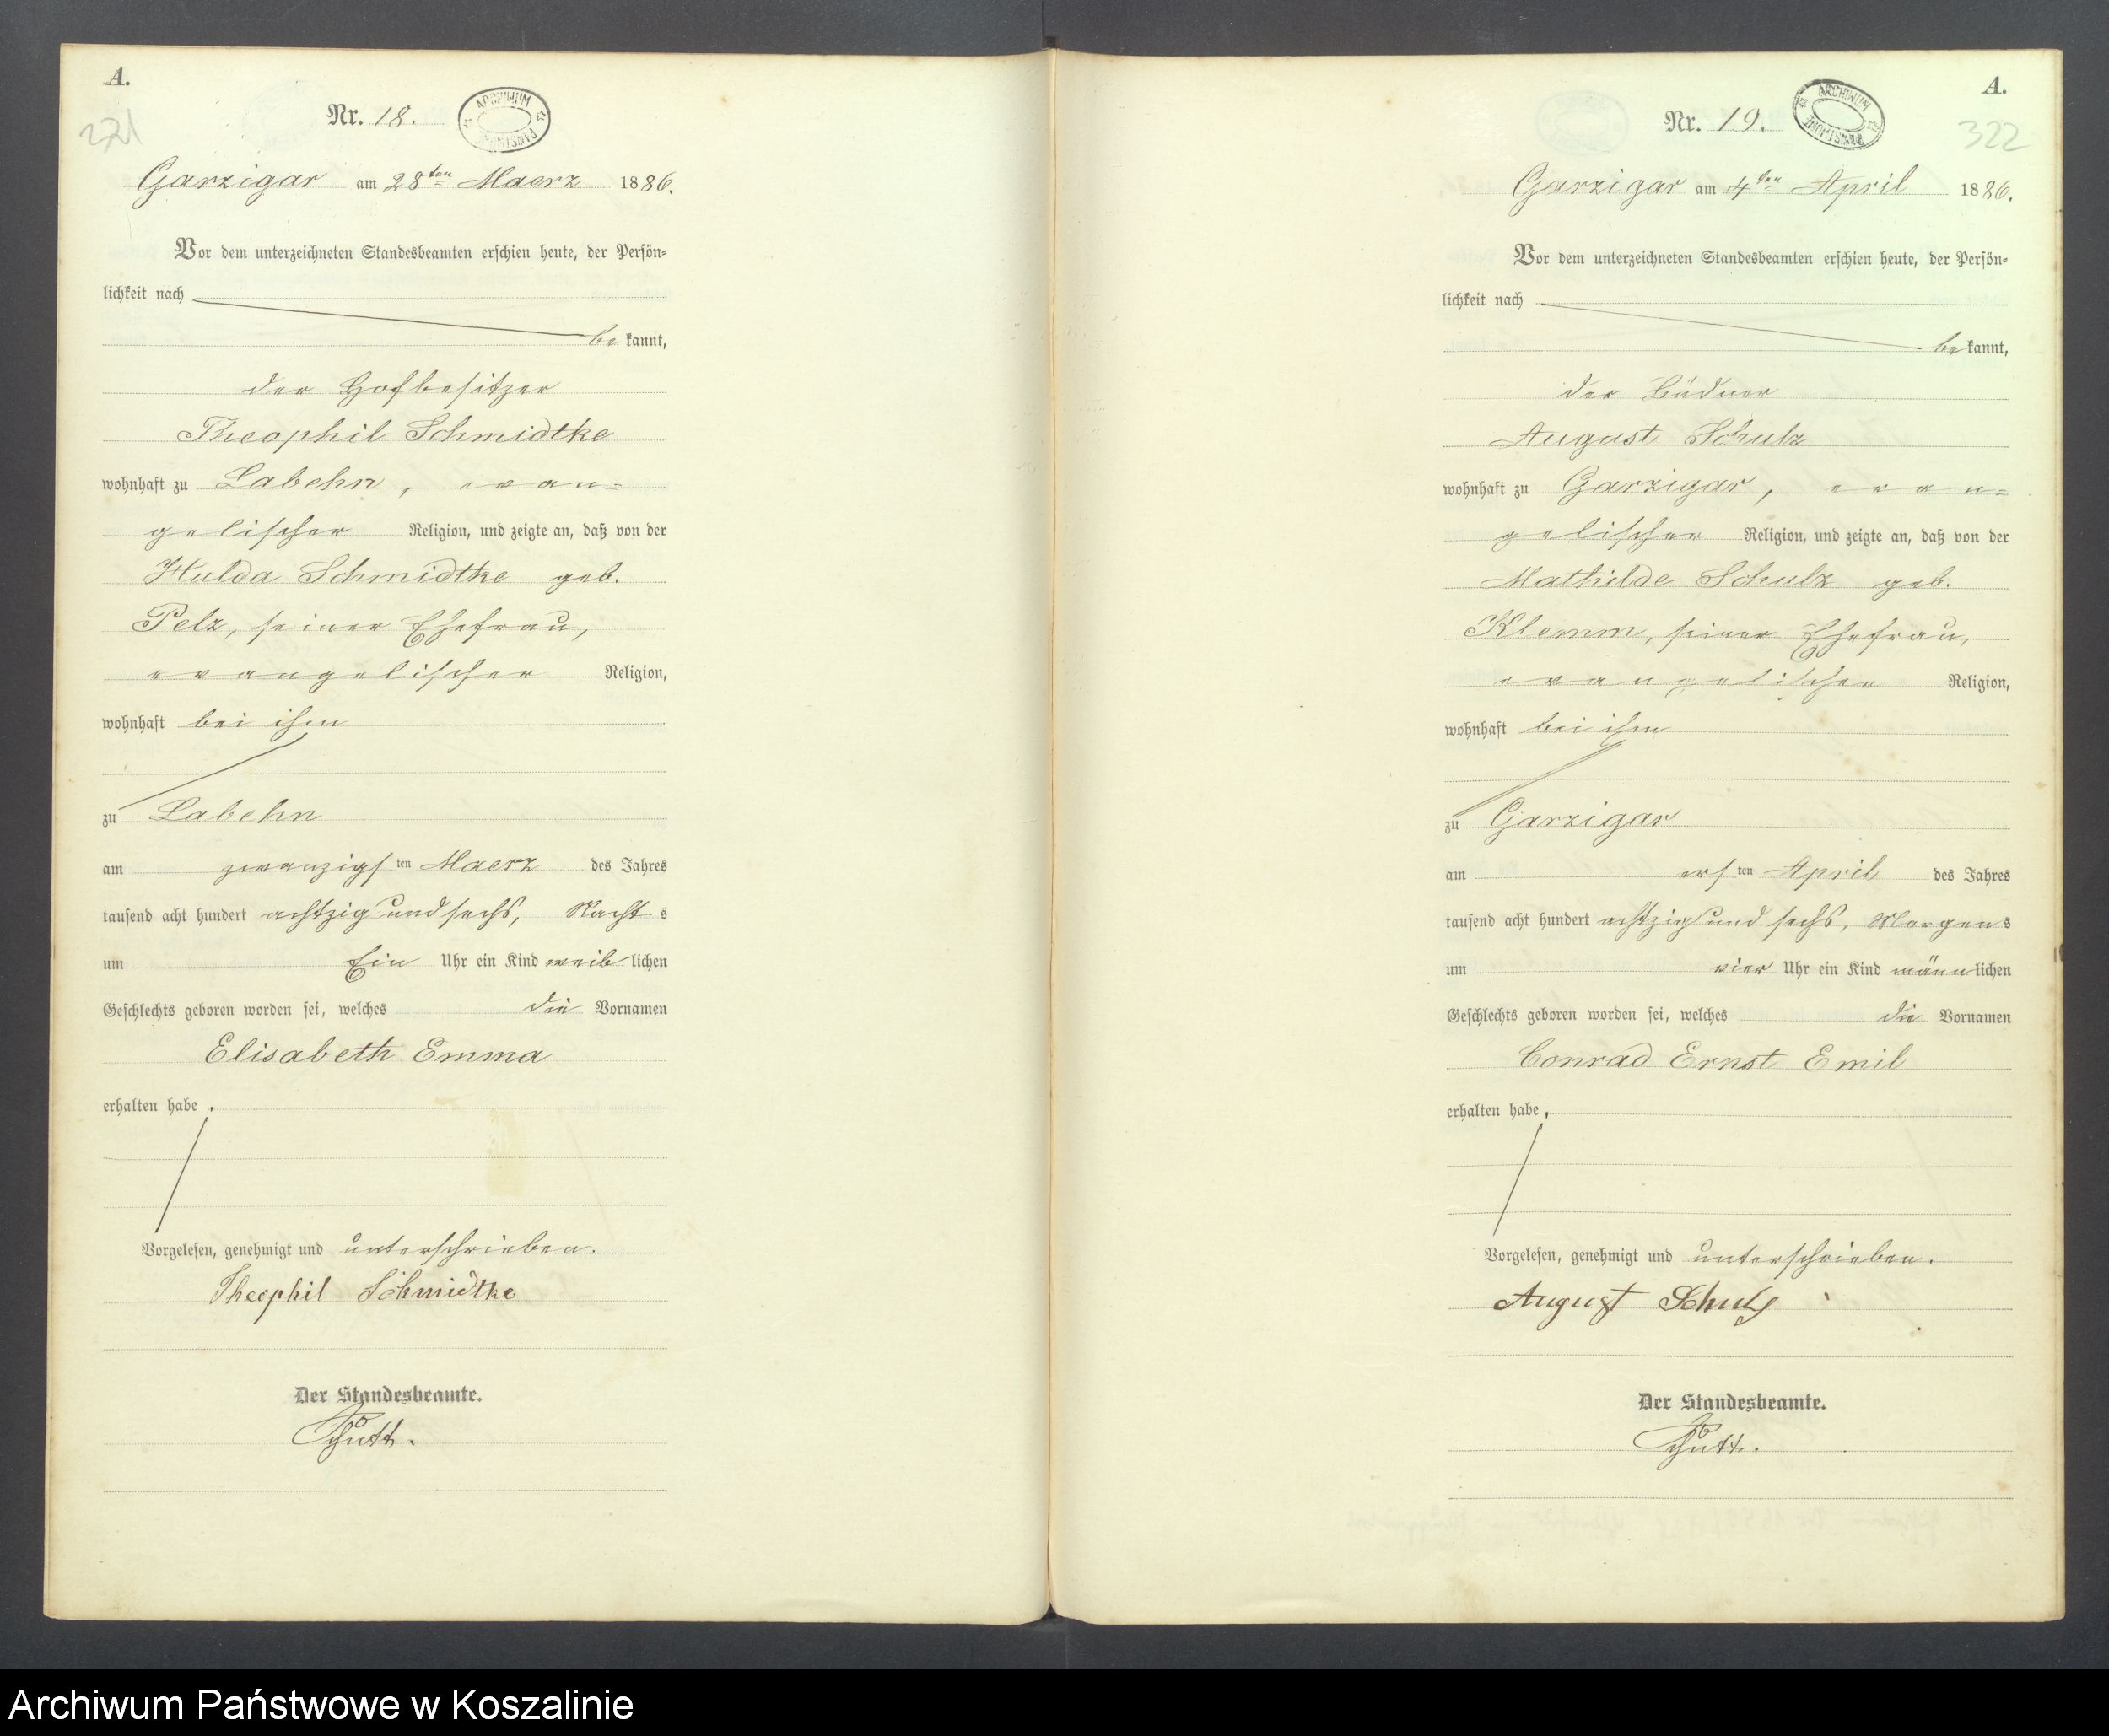 A.
Nr. 18.
ARCHIWUM PAŃSTWOWE
271
Garzigar am 28ten Maerz 1886.
Vor dem unterzeichneten Standesbeamten erschien heute, der Persön-
lichkeit nach
bekannt,
der Hofbesitzer
Theophil Schmidtke
wohnhaft zu Labehn, evan-
gelischer Religion, und zeigte an, daß von der
Hulda Schmidtke geb.
Pelz, seiner Ehefrau,
evangelischer Religion,
wohnhaft bei ihm
zu Labehn
am zwanzigsten Maerz des Jahres
tausend acht hundert achtzig und sechs, Nachts
um Ein Uhr ein Kind weiblichen
Geschlechts geboren worden sei, welches die Vornamen
Elisabeth Emma
erhalten habe.
Vorgelesen, genehmigt und unterschrieben.
Theophil Schmidtke
Der Standesbeamte.
A.
Nr. 19.
ARCHIWUM PAŃSTWOWE
322
Garzigar am 4ten April 1886.
Vor dem unterzeichneten Standesbeamten erschien heute, der Persön-
lichkeit nach
bekannt,
der Büdner
August Schulz
wohnhaft zu Garzigar, evan-
gelischer Religion, und zeigte an, daß von der
Mathilde Schulz geb.
Klemm, seiner Ehefrau,
evangelischer Religion,
wohnhaft bei ihm
zu Garzigar
am ersten April des Jahres
tausend acht hundert achtzig und sechs, Morgens
um vier Uhr ein Kind männlichen
Geschlechts geboren worden sei, welches die Vornamen
Conrad Ernst Emil
erhalten habe.
Vorgelesen, genehmigt und unterschrieben.
August Schulz
Der Standesbeamte.
Archiwum Państwowe w Koszalinie